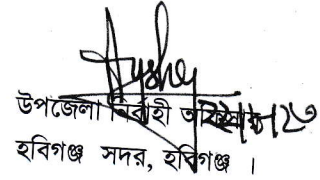 উপজেলা নির্বাহী অফিসার
হবিগঞ্জ সদর, হবিগঞ্জ ।